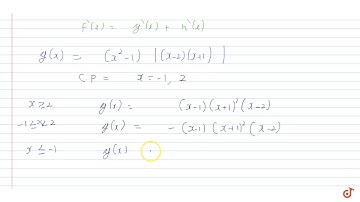 f'(x) = g'(x) + h'(x)
g(x) = (x²-1) |(x-2)(x+1)|
C.P = x = -1, 2
x ≥ 2 g(x) = (x-1)(x+1)²(x-2)
-1 ≤ x < 2 g(x) = -(x-1)(x+1)²(x-2)
x ≤ -1 g(x)
doubtnut